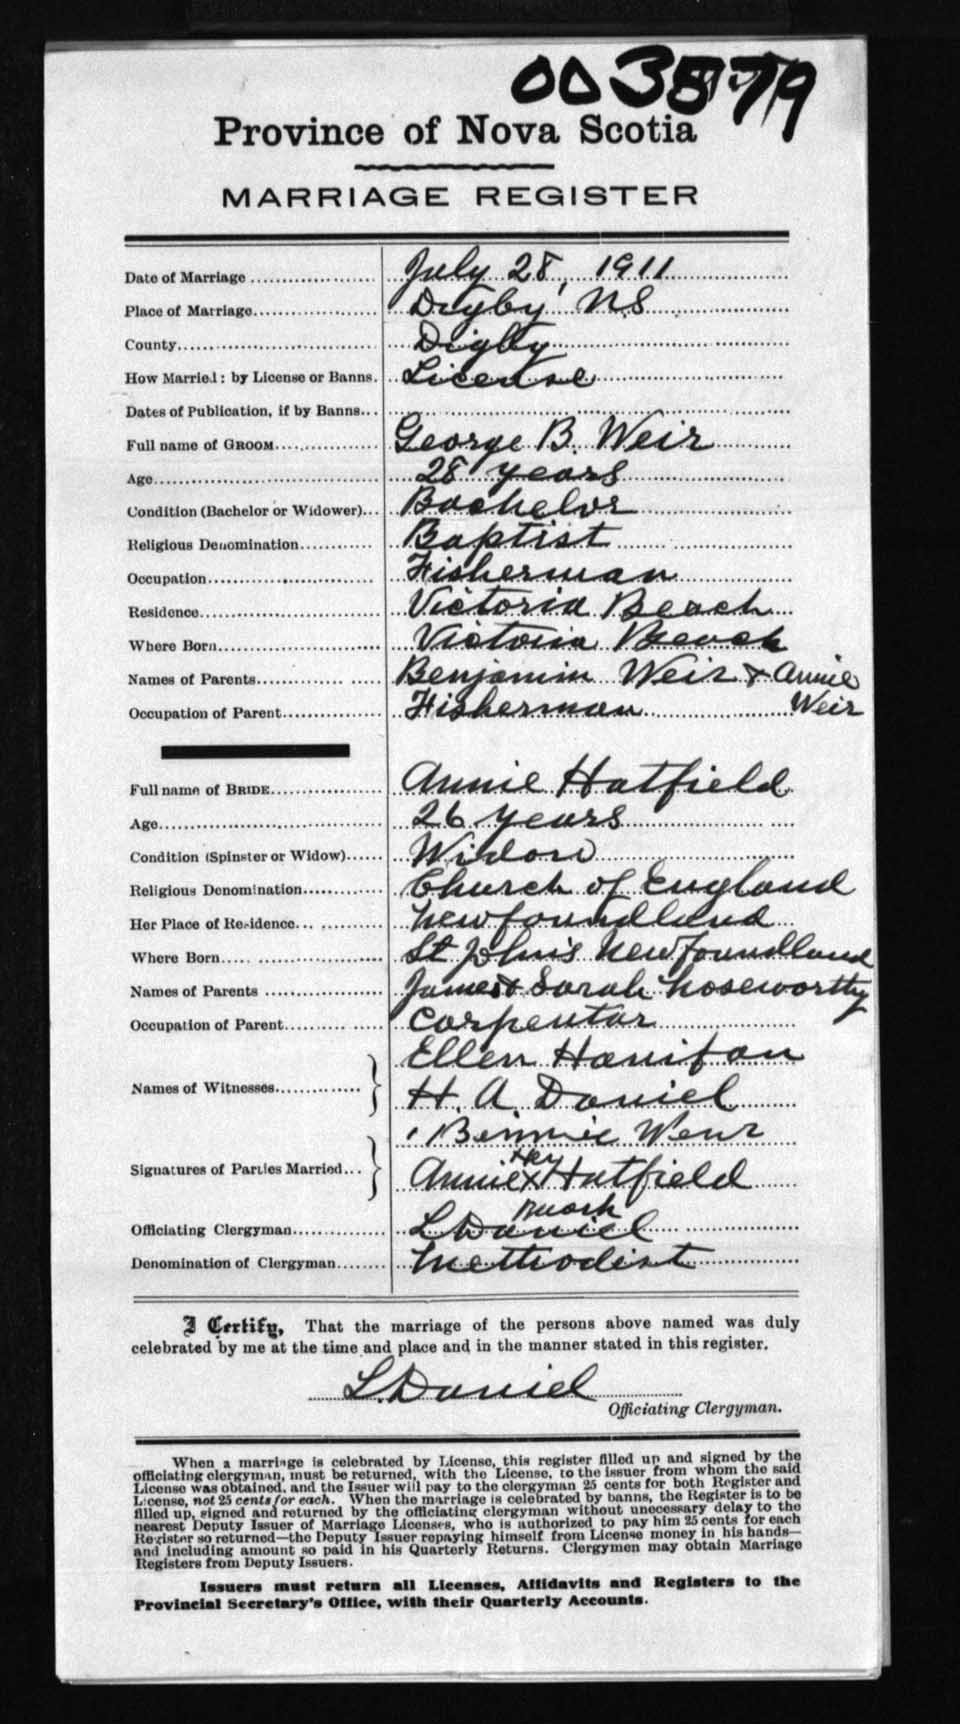 003579
Province of Nova Scotia
MARRIAGE REGISTER
Date of Marriage July 28, 1911
Place of Marriage Digby N.S
County Digby
How Married: by License or Banns. License
Dates of Publication, if by Banns
Full name of GROOM George B. Weir
Age 28 years
Condition (Bachelor or Widower) Bachelor
Religious Denomination Baptist
Occupation Fisherman
Residence Victoria Beach
Where Born Victoria Beach
Names of Parents Benjamin Weir & Annie
Weir
Occupation of Parent Fisherman
Full name of BRIDE Annie Hatfield
Age 26 years
Condition (Spinster or Widow) Widow
Religious Denomination Church of England
Her Place of Residence Newfoundland
Where Born St John's Newfoundland
Names of Parents James & Sarah Noseworthy
Occupation of Parent Carpentar
Names of Witnesses Ellen Hanifan
H. A. Daniel
Signatures of Parties Married Bennie Weir
Annie her X Hatfield
mark
Officiating Clergyman L Daniel
Denomination of Clergyman Methodist
I Certify, That the marriage of the persons above named was duly
celebrated by me at the time and place and in the manner stated in this register.
L. Daniel
Officiating Clergyman.
When a marriage is celebrated by License, this register filled up and signed by the
officiating clergyman, must be returned, with the License, to the issuer from whom the said
License was obtained, and the Issuer will pay to the clergyman 25 cents for both Register and
License, not 25 cents for each. When the marriage is celebrated by banns, the Register is to be
filled up, signed and returned by the officiating clergyman without unnecessary delay to the
nearest Deputy Issuer of Marriage Licenses, who is authorized to pay him 25 cents for each
Register so returned—the Deputy Issuer repaying himself from License money in his hands—
and including amount so paid in his Quarterly Returns. Clergymen may obtain Marriage
Registers from Deputy Issuers.
Issuers must return all Licenses, Affidavits and Registers to the
Provincial Secretary's Office, with their Quarterly Accounts.